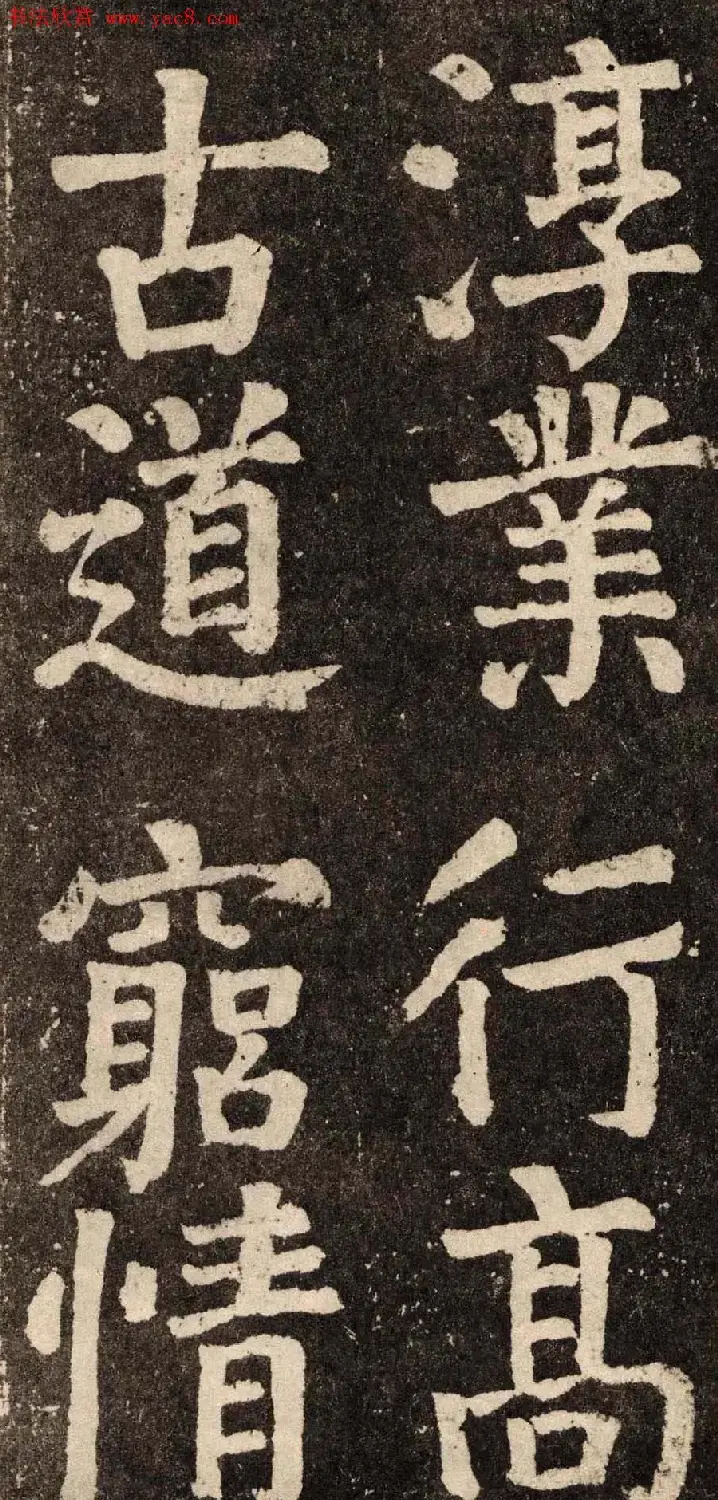 书法欣赏 www.yac8.com
淳業行髙
古道窮情